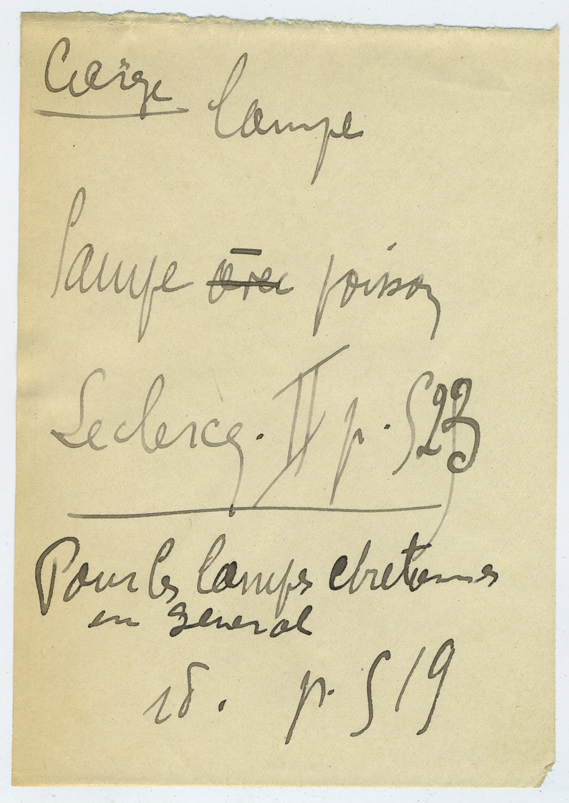 lampe
lampe avec poisson
Leclercq. II p. 523
Pour les lampes chretiennes
en general
id. p. 519